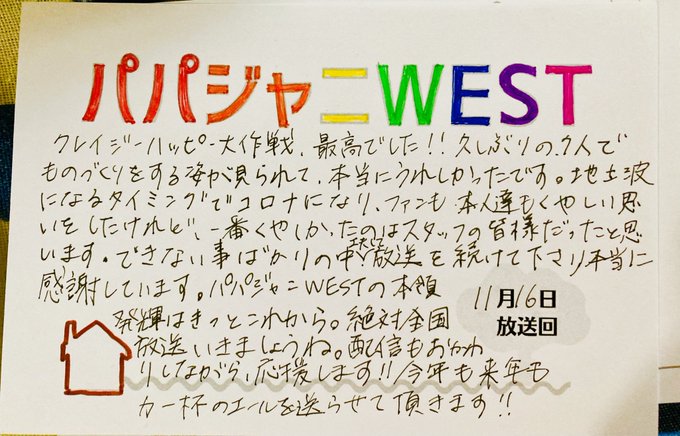 パパジャニWEST
クレイジーハッピー大作戦、最高でした!!久しぶりの、7人で
ものづくりをする姿が見られて、本当にうれしかったです。地上波
になるタイミングでコロナになり、ファンも本人達もくやしい思
いをしたけれど、一番くやしかったのはスタッフの皆様だったと思
います。できない事ばかりの中、放送を続けて下さり本当に
感謝しています。パパジャニWESTの本領
発揮はきっとこれから。絶対全国
放送いきましょうね。配信もおかわ
りしながら、応援します!!今年も来年も
力一杯のエールを送らせて頂きます!!
11月16日
放送回